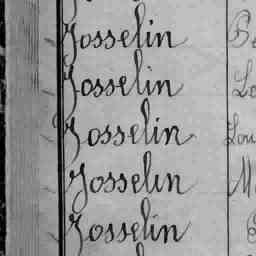 Josselin
Josselin
Josselin Lou
Josselin
Josselin